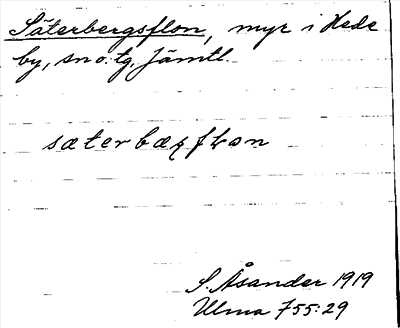 Säterbergsflon, myr i Hede
by, sn o. tg, Jämtl.
sæterbæʐfɫon
S. Åsander 1919
Ulma 755:29